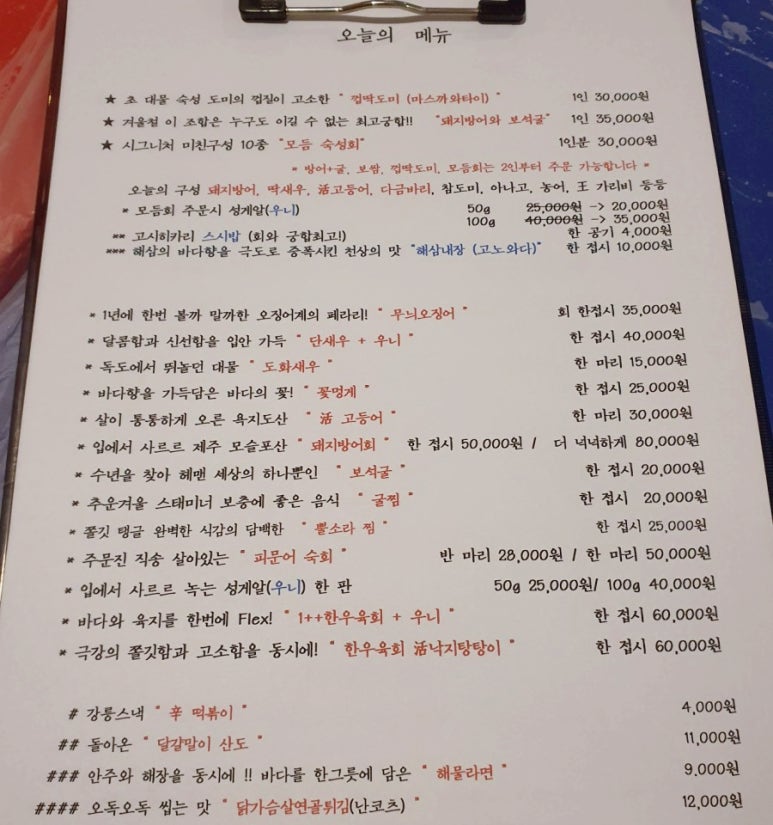 오늘의 메뉴
★ 초 대물 숙성 도미의 껍질이 고소한 " 껍딱도미 (마스까와타이) " 1인 30,000원
★ 겨울철 이 조합은 누구도 이길 수 없는 최고궁합!! "돼지방어와 보석굴" 1인 35,000원
★ 시그니처 미친구성 10종 "모듬 숙성회" 1인분 30,000원
* 방어+굴, 보쌈, 껍딱도미, 모듬회는 2인부터 주문 가능합니다 *
오늘의 구성 돼지방어, 딱새우, 活고등어, 다금바리, 참도미, 아나고, 농어, 王 가리비 등등
* 모듬회 주문시 성게알(우니) 50g 25,000원 -> 20,000원
100g 40,000원 -> 35,000원
** 고시히카리 스시밥 (회와 궁합최고!) 한 공기 4,000원
*** 해삼의 바다향을 극도로 증폭시킨 천상의 맛 "해삼내장 (고노와다)" 한 접시 10,000원
* 1년에 한번 볼까 말까한 오징어계의 페라리! " 무늬오징어 " 회 한접시 35,000원
* 달콤함과 신선함을 입안 가득 " 단새우 + 우니 " 한 접시 40,000원
* 독도에서 뛰놀던 대물 " 도화새우 " 한 마리 15,000원
* 바다향을 가득담은 바다의 꽃! " 꽃멍게 " 한 접시 25,000원
* 살이 통통하게 오른 욕지도산 " 活 고등어 " 한 마리 30,000원
* 입에서 사르르 제주 모슬포산 " 돼지방어회 " 한 접시 50,000원 / 더 넉넉하게 80,000원
* 수년을 찾아 헤맨 세상의 하나뿐인 " 보석굴 " 한 접시 20,000원
* 추운겨울 스태미너 보충에 좋은 음식 " 굴찜 " 한 접시 20,000원
* 쫄깃 탱글 완벽한 식감의 담백한 " 뿔소라 찜 " 한 접시 25,000원
* 주문진 직송 살아있는 " 피문어 숙회 " 반 마리 28,000원 / 한 마리 50,000원
* 입에서 사르르 녹는 성게알(우니) 한 판 50g 25,000원/ 100g 40,000원
* 바다와 육지를 한번에 Flex! " 1++한우육회 + 우니 " 한 접시 60,000원
* 극강의 쫄깃함과 고소함을 동시에! " 한우육회 活낙지탕탕이 " 한 접시 60,000원
# 강릉스낵 " 辛 떡볶이 " 4,000원
## 돌아온 " 달걀말이 산도 " 11,000원
### 안주와 해장을 동시에 !! 바다를 한그릇에 담은 " 해물라면 " 9.000원
#### 오독오독 씹는 맛 " 닭가슴살연골튀김(난코츠) " 12,000원